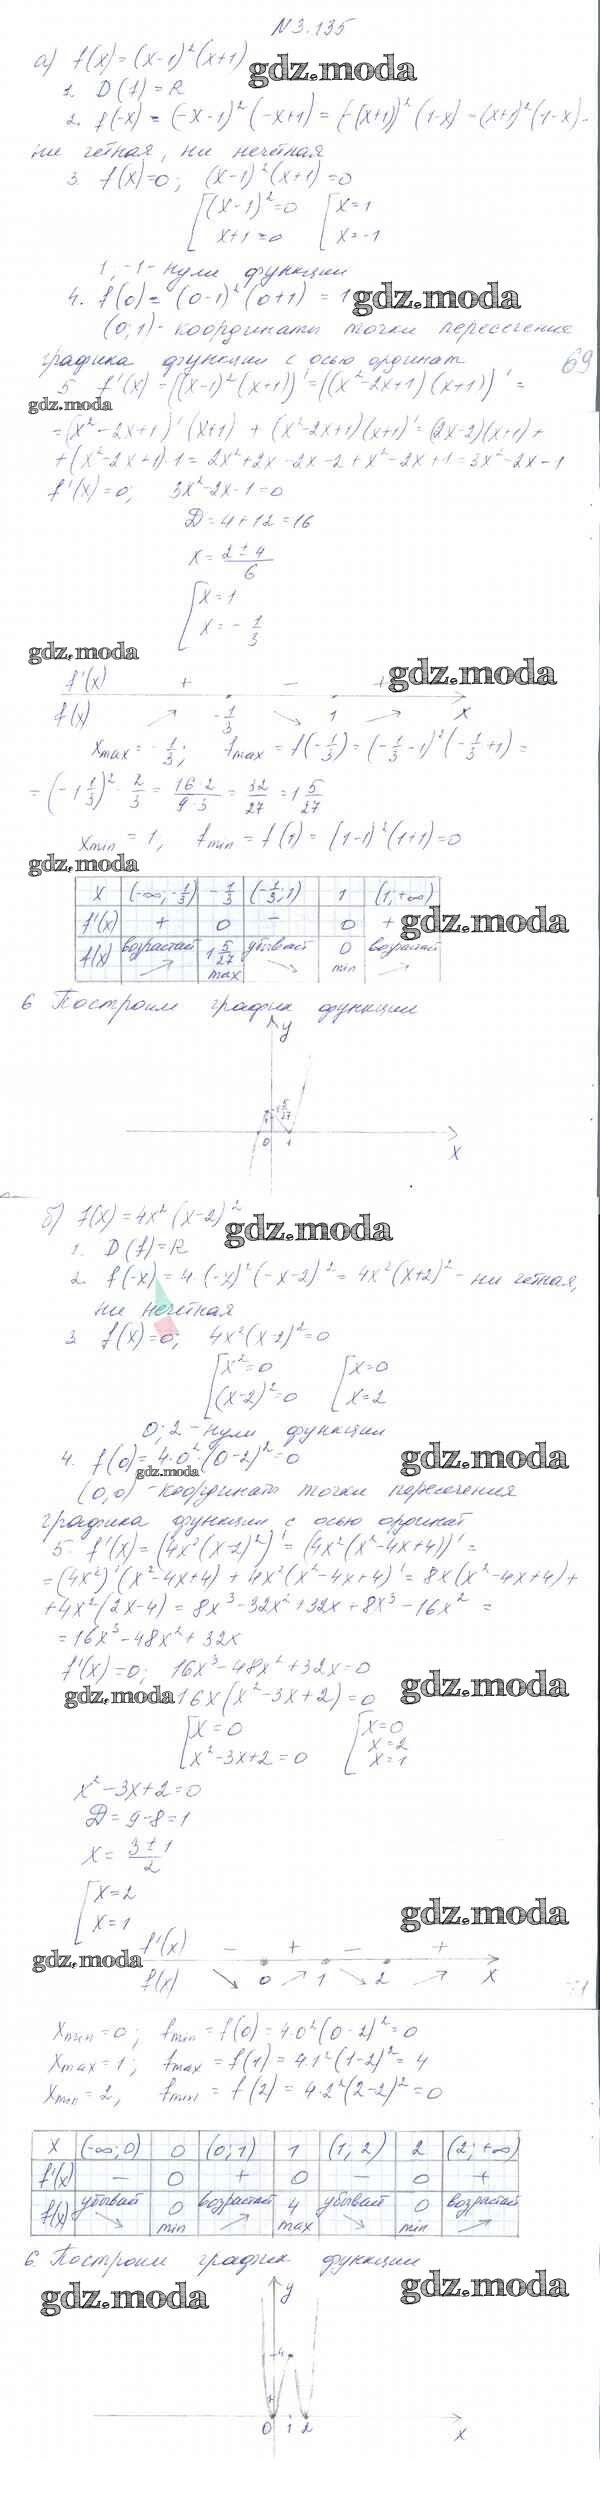 №3.135
а) f(x) = (x-1)²(x+1)
gdz.moda
1. D(f) = R
2. f(-x) = (-x-1)²(-x+1) = (-(x+1))²(1-x) = (x+1)²(1-x) -
ни чётная, ни нечётная
3. f(x)=0; (x-1)²(x+1)=0
[(x-1)²=0 [x=1
x+1=0 x=-1
1, -1 - нули функции
4. f(0) = (0-1)²(0+1) = 1
gdz.moda
(0;1) - координаты точки пересечения
графика функции с осью ординат
69
5. f'(x) = ((x-1)²(x+1))' = ((x²-2x+1)(x+1))' =
gdz.moda
= (x²-2x+1)'(x+1) + (x²-2x+1)(x+1)' = (2x-2)(x+1) +
+(x²-2x+1)·1 = 2x²+2x-2x-2+x²-2x+1 = 3x²-2x-1
f'(x)=0; 3x²-2x-1=0
D = 4+12 = 16
x = (2±4)/6
[x=1
x = -1/3
gdz.moda
gdz.moda
f'(x) + - +
f(x) ↗ -1/3 ↘ 1 ↗ x
xmax = -1/3; fmax = f(-1/3) = (-1/3-1)²(-1/3+1) =
= (-1 1/3)² · 2/3 = 16·2/9·3 = 32/27 = 1 5/27
xmin = 1, fmin = f(1) = (1-1)²(1+1) = 0
gdz.moda
x (-∞;-1/3) -1/3 (-1/3;1) 1 (1;+∞)
f'(x) + 0 - 0 +
gdz.moda
f(x) возрастает ↗ 1 5/27 max убывает ↘ 0 min возрастает ↗
6 Построим график функции
y
1 5/27
0 1
x
б) f(x) = 4x²(x-2)²
gdz.moda
1. D(f) = R
2. f(-x) = 4·(-x)²(-x-2)² = 4x²(x+2)² - ни чётная,
ни нечётная
3 f(x)=0; 4x²(x-2)²=0
[x²=0 [x=0
(x-2)²=0 x=2
0; 2 - нули функции
4. f(0) = 4·0²·(0-2)² = 0
gdz.moda
gdz.moda
(0;0) - координаты точки пересечения
графика функции с осью ординат
5. f'(x) = (4x²(x-2)²)' = (4x²(x²-4x+4))' =
= (4x²)'(x²-4x+4) + 4x²(x²-4x+4)' = 8x(x²-4x+4)+
+4x²(2x-4) = 8x³-32x²+32x+8x³-16x² =
= 16x³-48x²+32x
f'(x)=0; 16x³-48x²+32x=0
gdz.moda
gdz.moda
16x(x²-3x+2)=0
[x=0 [x=0
x²-3x+2=0 x=2
x=1
x²-3x+2=0
D = 9-8 = 1
x = (3±1)/2
[x=2
x=1
gdz.moda
gdz.moda
f'(x) - + - +
f(x) ↘ 0 ↗ 1 ↘ 2 ↗ x
xmin = 0; fmin = f(0) = 4·0²(0-2)² = 0
xmax = 1; fmax = f(1) = 4·1²(1-2)² = 4
xmin = 2, fmin = f(2) = 4·2²(2-2)² = 0
x (-∞;0) 0 (0;1) 1 (1;2) 2 (2;+∞)
f'(x) - 0 + 0 - 0 +
f(x) убывает ↘ 0 min возрастает ↗ 4 max убывает ↘ 0 min возрастает ↗
6. Построим график функции
gdz.moda
gdz.moda
y
4
0 1 2
x